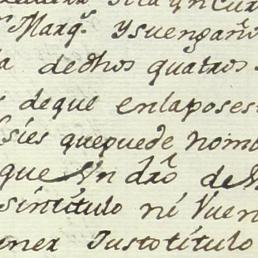 Marq.s Ysuengaño
dedhos quatro s
deque enlaposes
sies quepuede nom
que Un dro de
sintitulo ni Vuen
ner Justotitulo